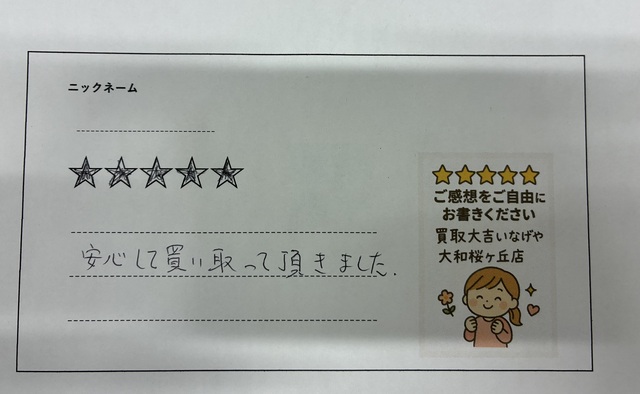 ニックネーム
安心して買い取って頂きました.
ご感想をご自由に
お書きください
買取大吉いなげや
大和桜ヶ丘店